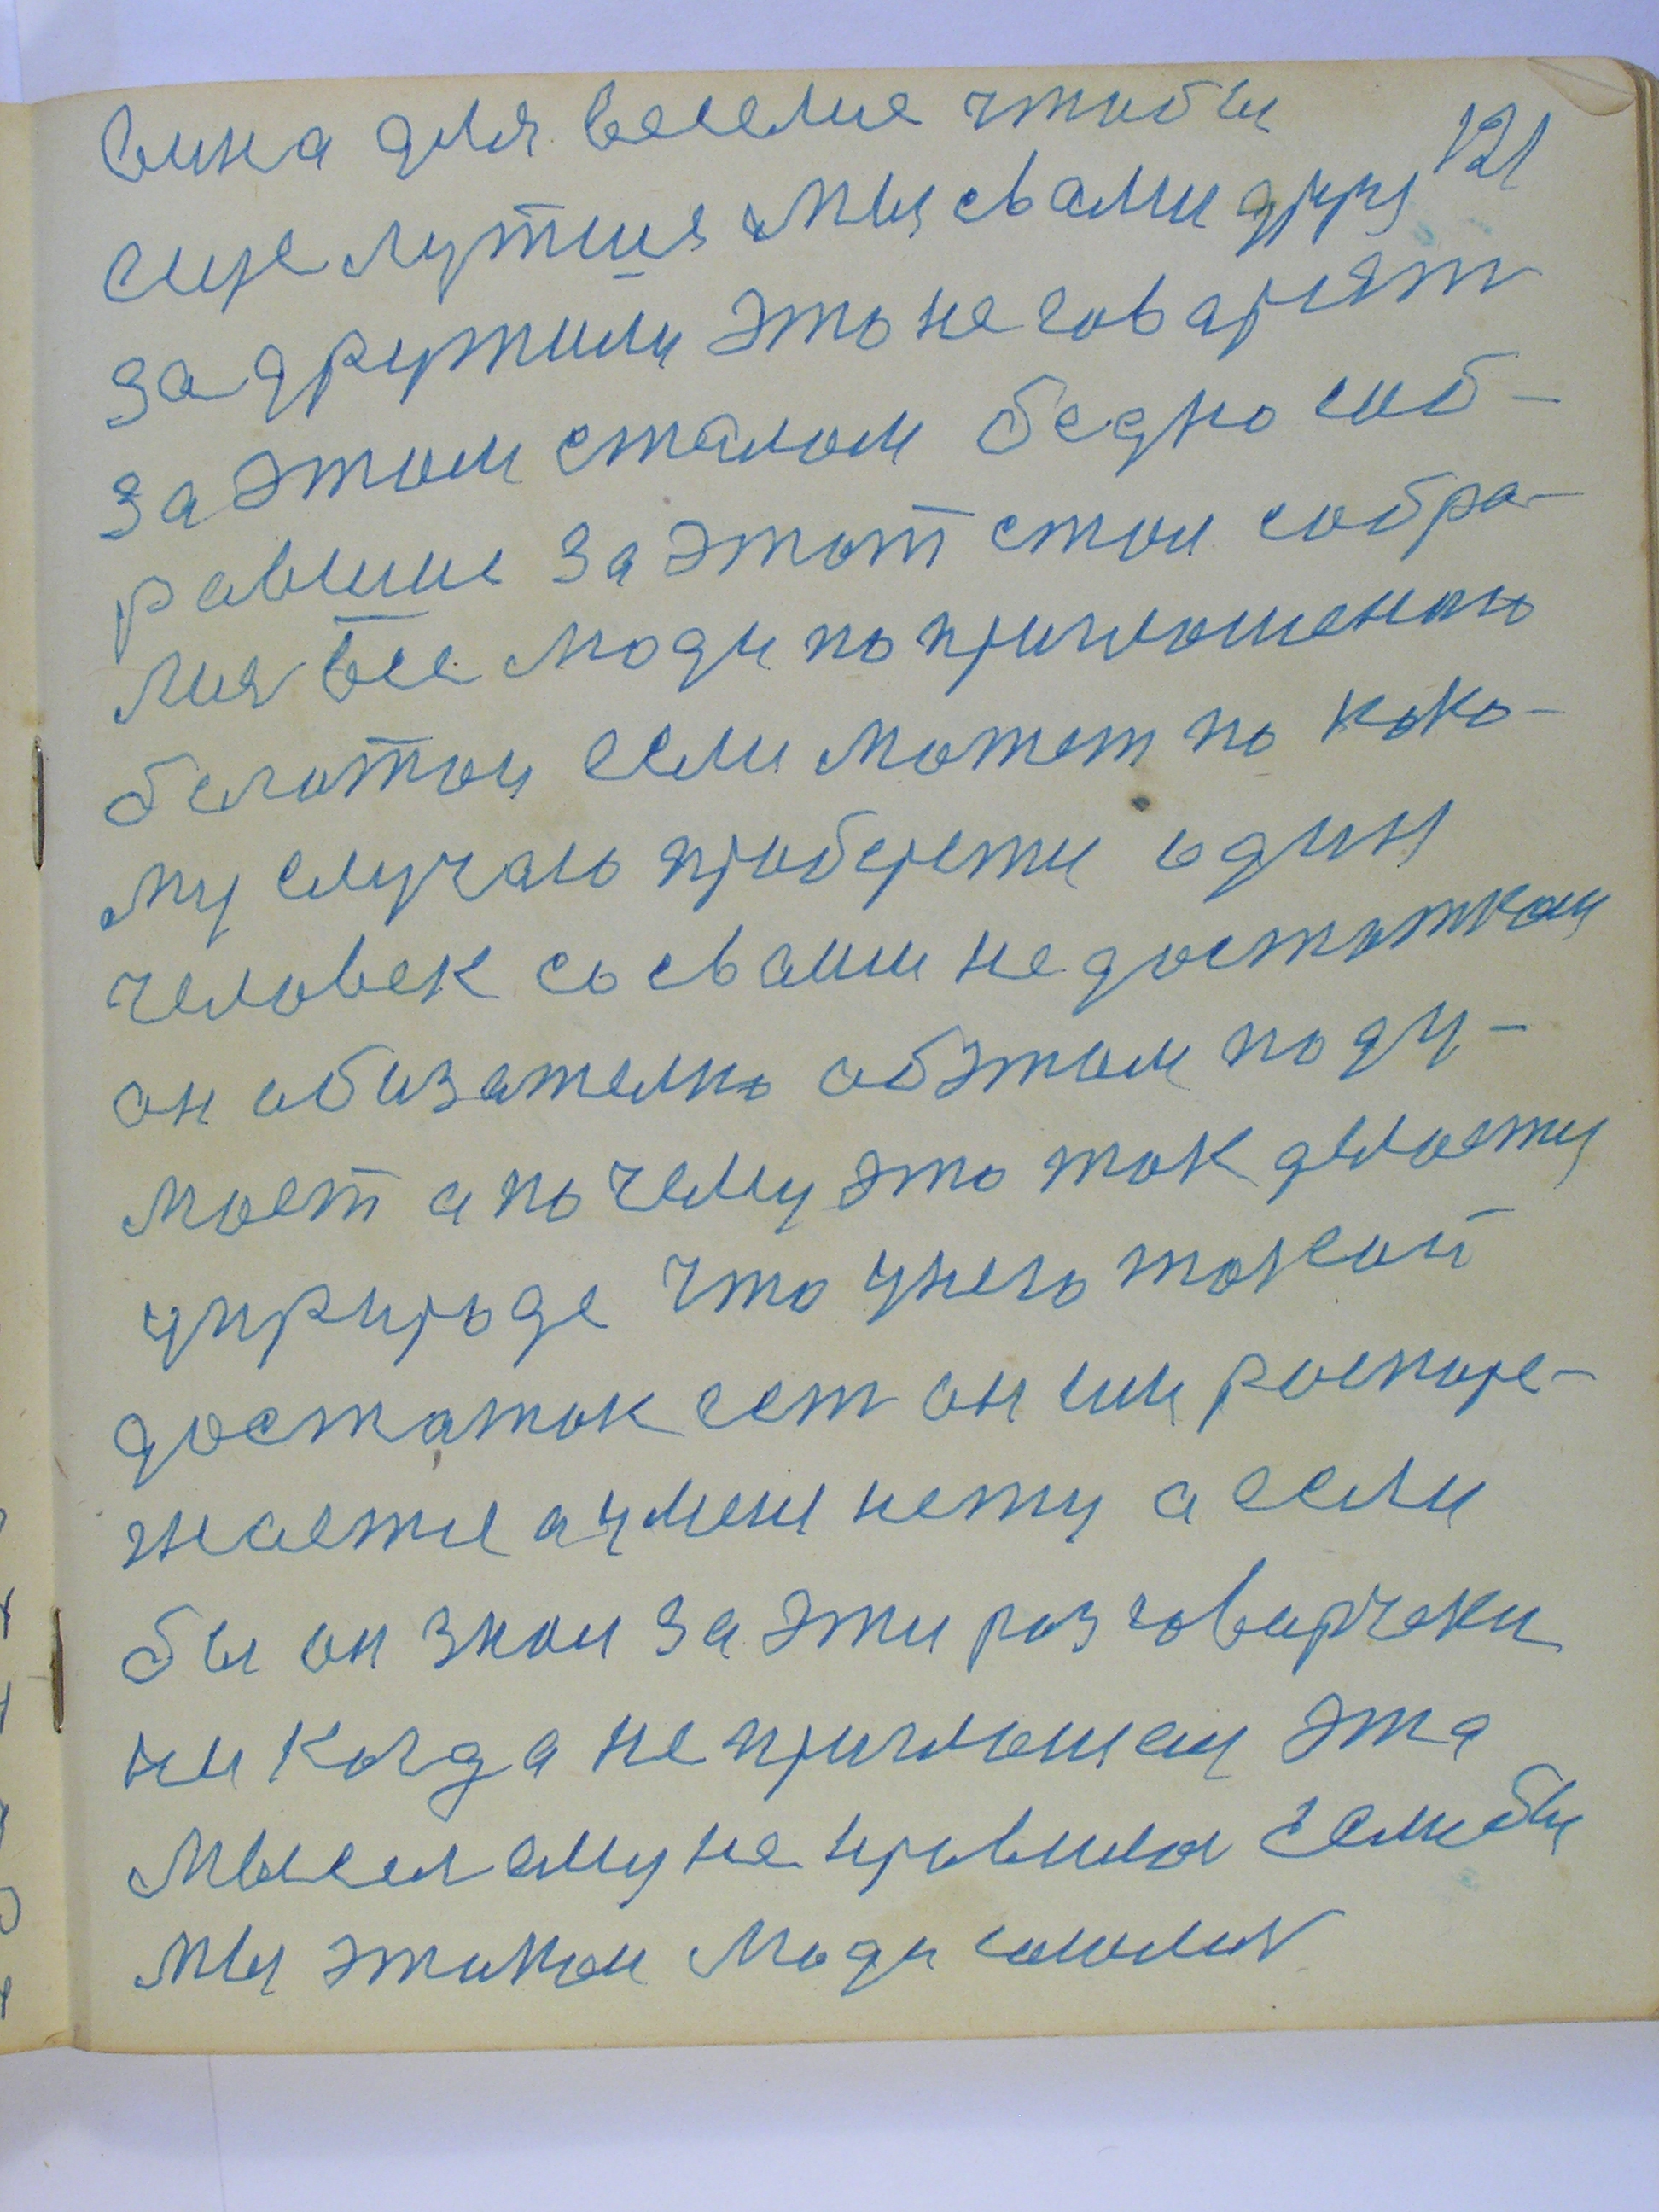 вина для веселие чтобы
121
еще лутшя мы свами друз
задружили это не говарят
за этом сталом бедно соб-
равшие за этот стол собра-
лия все люди по приглошению
богатои если может по како-
му случаю проберети один
человек со своими недостаткаи
он обизателно обэтом поду-
моет а почему это так делоети
уприроде что унего токой
достаток ест он им роспоре-
жаетие а умени нету а если
бы он знои за эти розговарчеки
ни когда не приглошаи эта
мысел ему не нравила если бы
мы люди